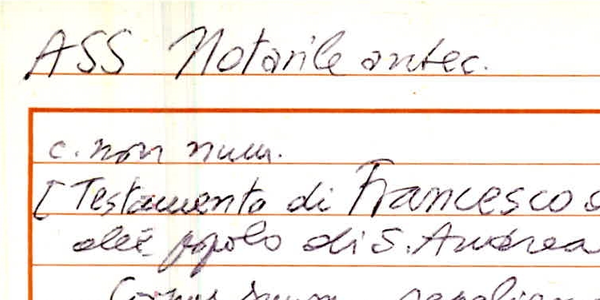 ASS Notarile antec.
c. non num.
[Testamento di Francesco
del popolo di S. Andrea
Corpus suum